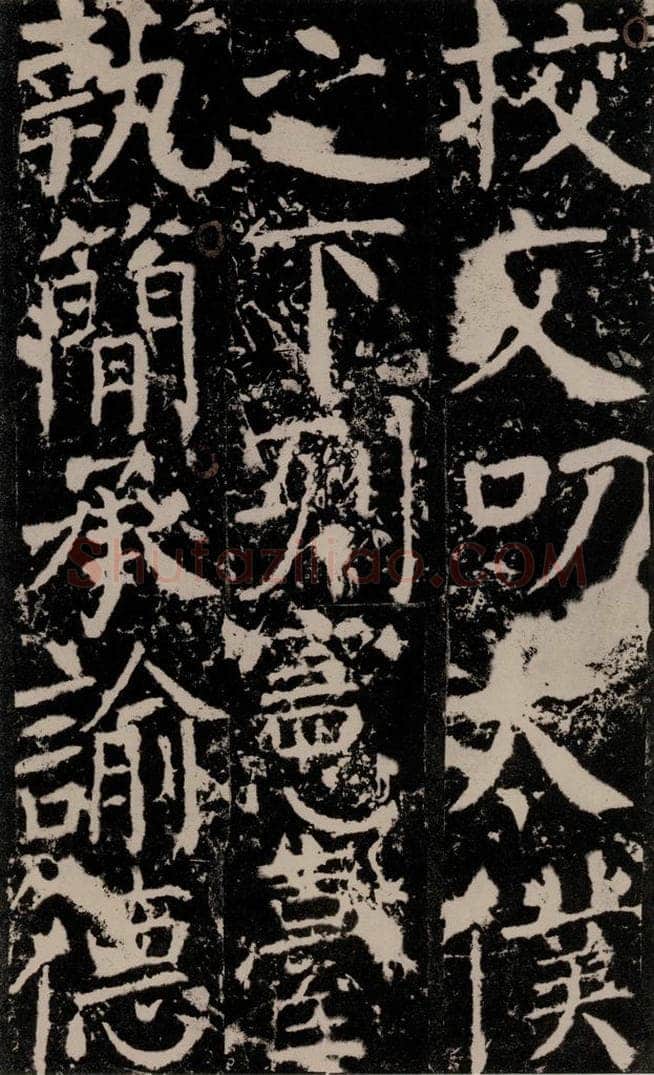 校文叨太僕
之下列憲臺
執簡承諭德
Shufaziliao.COM